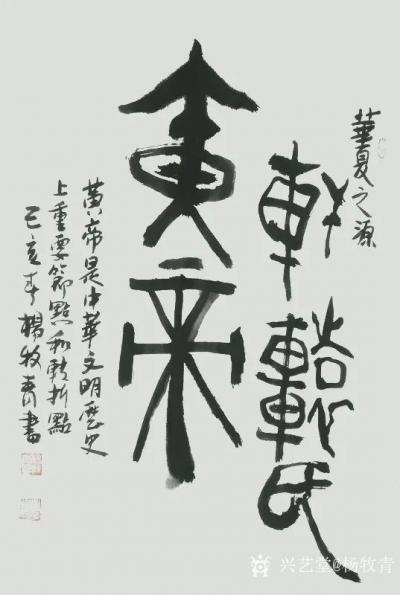 華夏之源
軒轅氏
黃帝
黃帝是中華文明歷史
上重要節點和轉折點
己亥年楊牧青書
兴艺堂@杨牧青